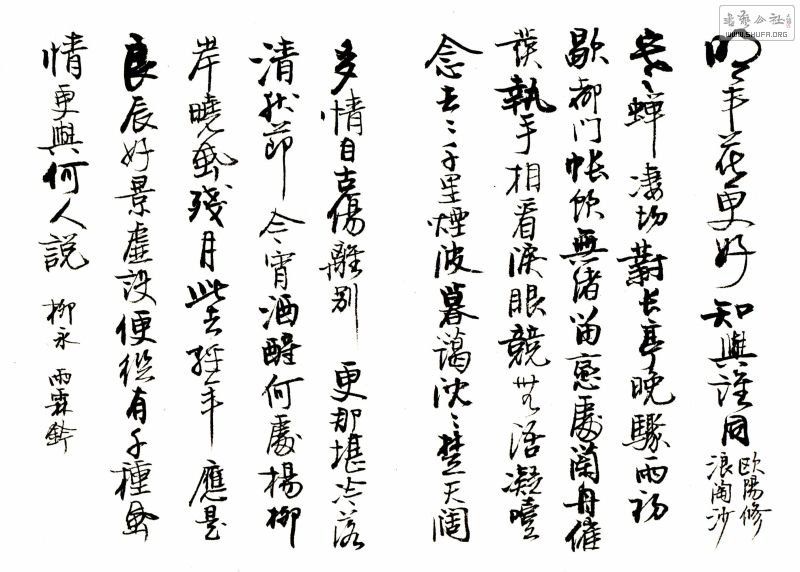 書藝公社
WWW.SHUFA.ORG
明年花更好 知與誰同
歐陽修
浪淘沙
寒蟬凄切對長亭晚驟雨初
歇都門帳飲無緒留戀處蘭舟催
發執手相看淚眼競無語凝噎
念去〻千里煙波暮靄沈〻楚天闊
多情自古傷離别 更那堪冷落
清秋節 今宵酒醒何處楊柳
岸曉風殘月此去經年 應是
良辰好景虛設便縱有千種風
情更與何人説 柳永 雨霖鈴